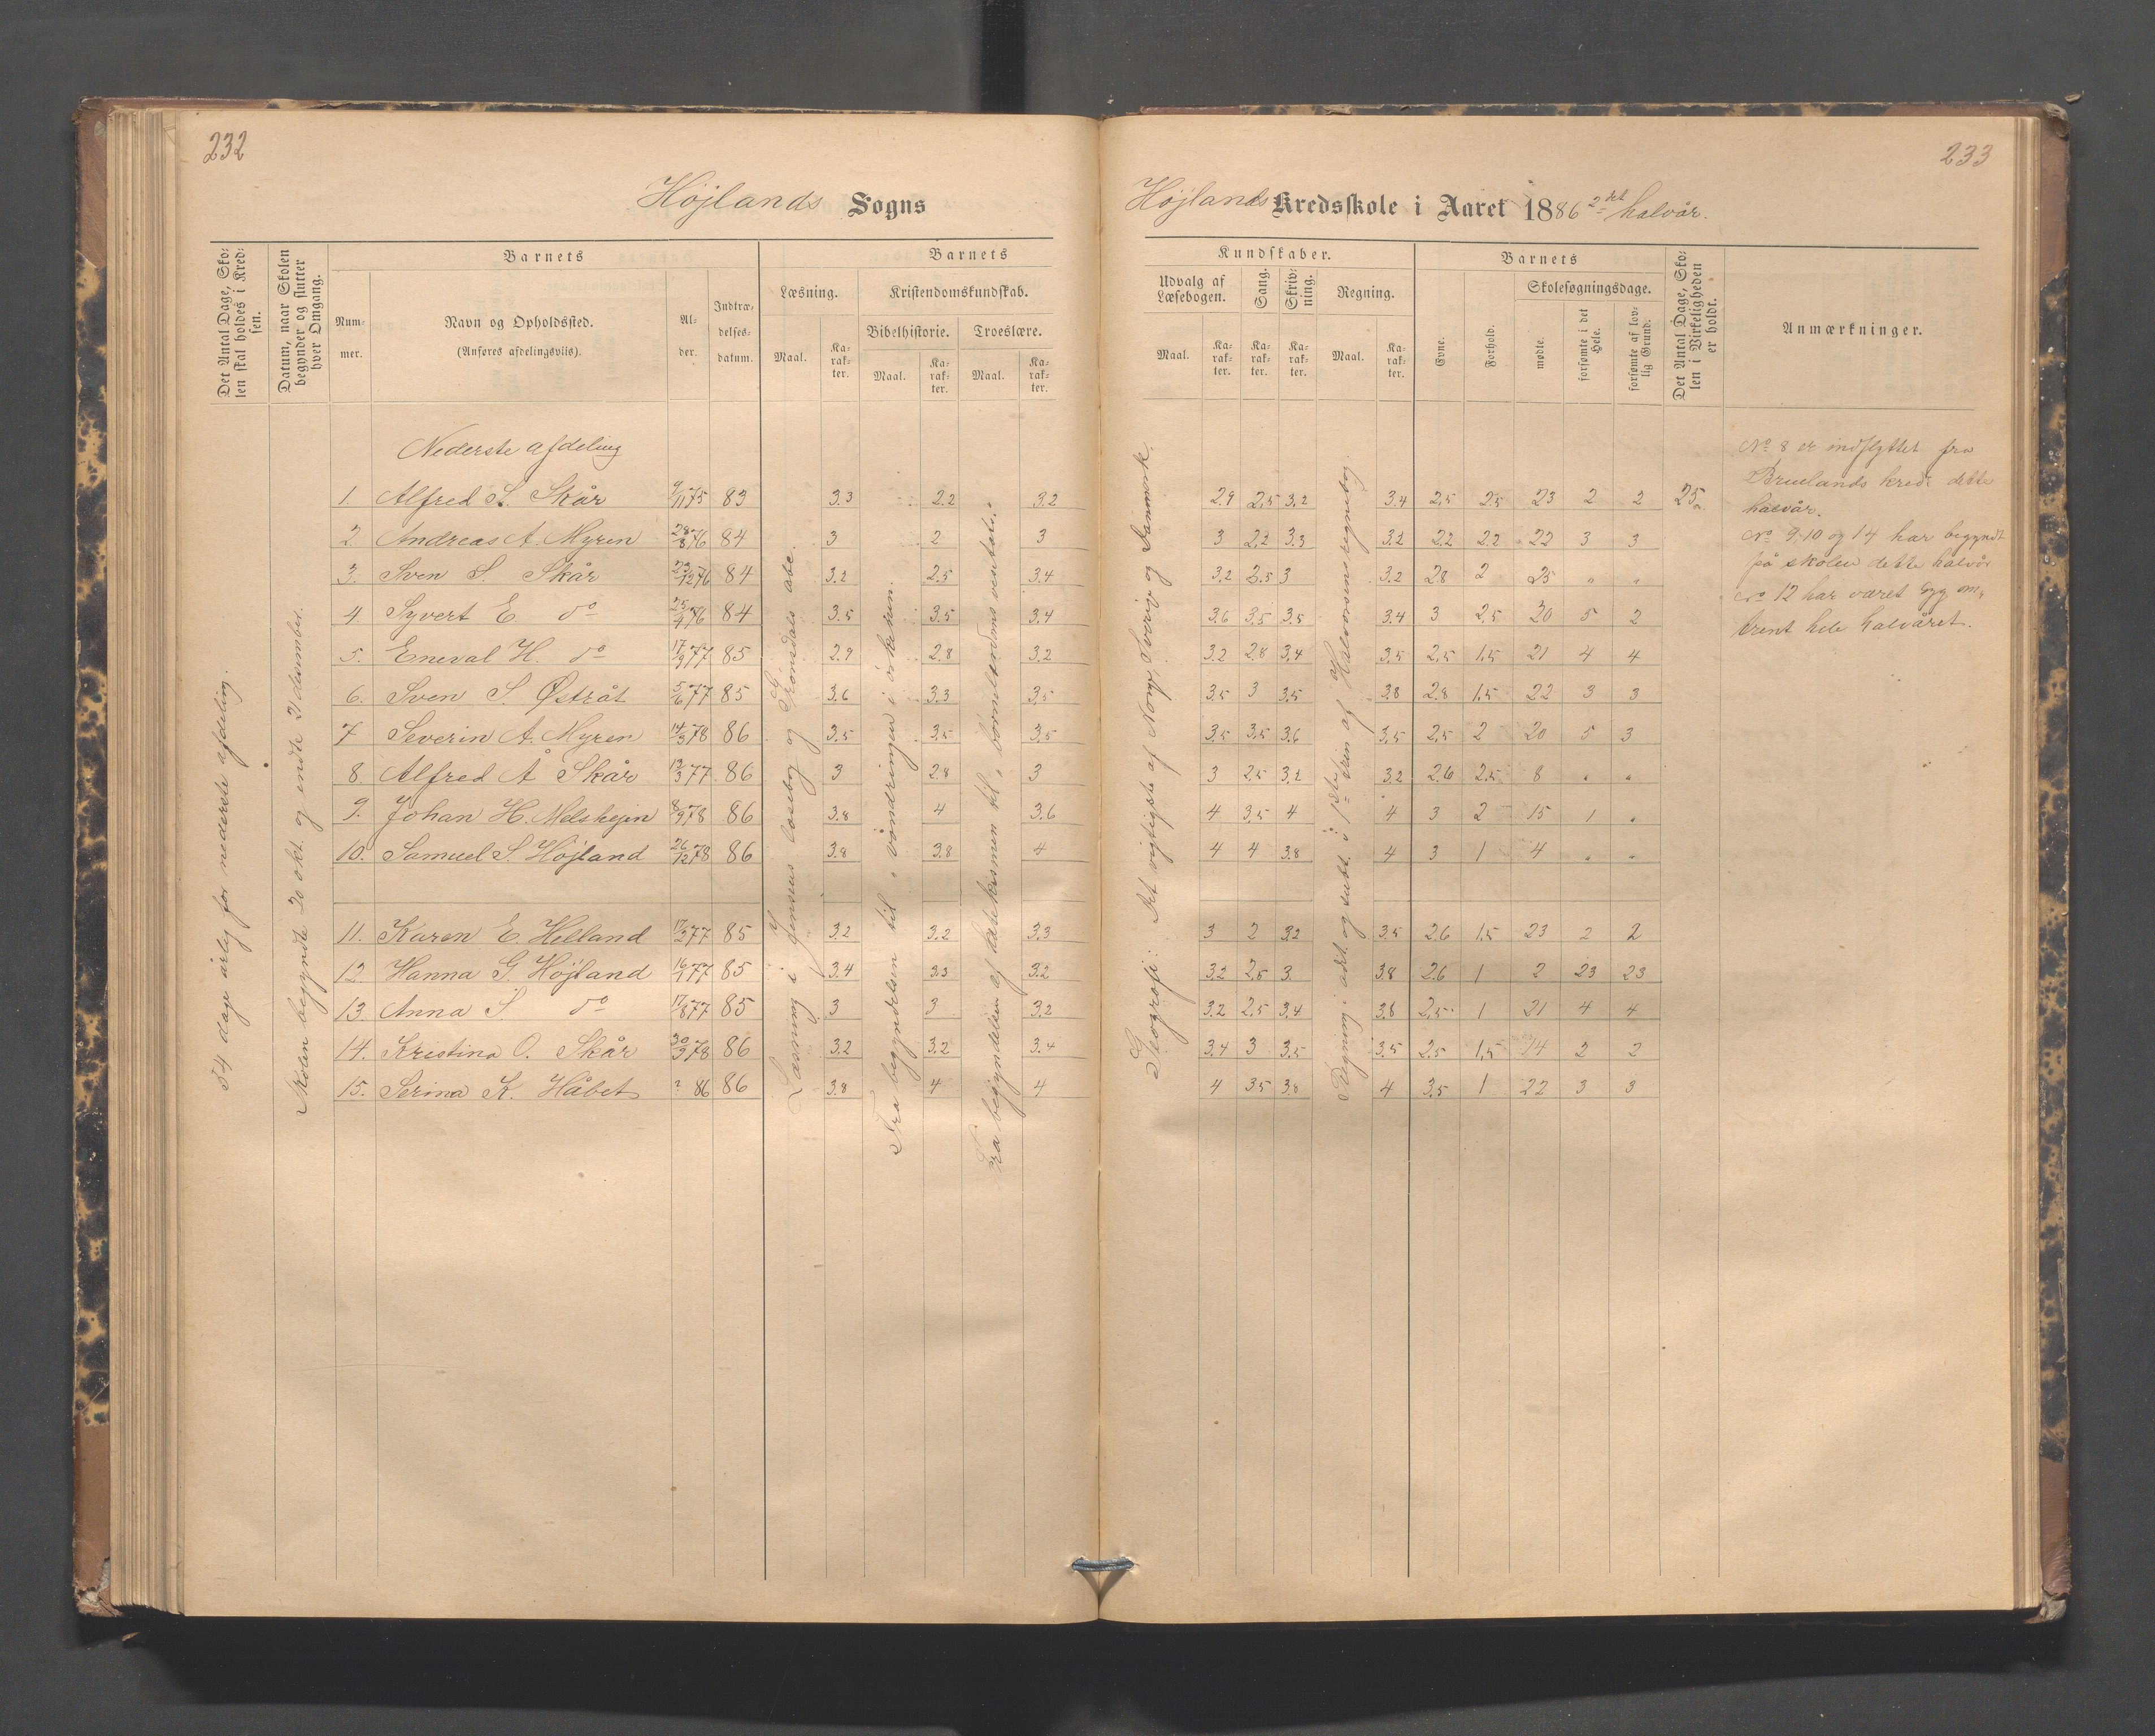 232
Højlands Sogns
Det Antal Dage, Sko-
len skal holdes i Kred-
sen.
Datum, naar Skolen
begynder og slutter
hver Omgang.
Barnets
Num-
mer.
Navn og Opholdssted.
(Anføres afdelingsviis).
Al-
der.
Indtræ-
delses-
datum.
Barnets
Læsning.
Maal.
Ka-
rak-
ter.
Kristendomskundskab.
Bibelhistorie.
Maal.
Ka-
rak-
ter.
Troeslære.
Maal.
Ka-
rak-
ter.
54 dage årlig for nederste afdeling.
Skolen begyndte 20 okt. og endte 21 desember.
Læsning i Jensens læsebog og Grønsdals abc.
Fra begyndelsen til " vandringen i ørkenen.
Fra begyndelsen af katekismen til
Nederste afdeling
1. Alfred S. Skår 9/11 75 83 3.3 2.2 3.2
2. Andreas A. Myren 28/8 76 84 3 2 3
3. Sven S. Skår 23/12 76 84 3.2 2.5 3.4
4 Syvert E. do 25/4 76 84 3.5 3.5 3.4
5. Eneval H. do 17/9 77 85 2.9 2.8 3.2
6. Sven S. Østråt 5/6 77 85 3.6 3.3 3.5
7 Severin A. Myren 14/3 78 86 3.5 3.5 3.5
8. Alfred Å Skår 12/3 77. 86 3 2.8 3
9. Johan H. Melshejen 8/9 78 86 3.8 4 3.6
10. Samuel S. Højland 26/12 78 86 3.8 3.8 4
11. Karen E. Helland 17/2 77 85 3.2 3.2 3.3
12. Hanna G. Højland 16/1 77 85 3.4 3.3 3.2
13. Anna S. do 17/8 77 85 3 3 3.2
14. Kristina O. Skår 30/3 78 86 3.2 3.2 3.4
15. Serina K. Håbet ? 86 86 3.8 4 4
233
Højlands Kredsskole i Aaret 1886 2det halvår.
Kundskaber.
Udvalg af
Læsebogen.
Maal.
Ka-
rak-
ter.
Sang.
Ka-
rak-
ter.
Skriv-
ning.
Ka-
rak-
ter.
Regning.
Maal.
Ka-
rak-
ter.
Barnets
Evne.
Forhold.
Skolesøgningsdage.
mødte.
forsømte i det
Hele.
forsømte af lov-
lig Grund.
Det Antal Dage, Sko-
len i Virkeligheden
er holdt.
Anmærkninger.
Geografi: Det vigtigste af Norge, Sverrig og Danmark.
Regning i add. og subt. i 1ste trin af Halvorsens regnebog.
2.9 2.5 3.2 3.4 2.5 2.5 23 2 2 25
3 2.2 3.3 3.2 2.2 2.2 22 3 3
3.2 2.5 3 3.2 2.8 2 25 " "
3.6 3.5 3.5 3.4 3 2.5 20 5 2
3.2 2.8 3.4 3.5 2.5 1.5 21 4 4
3.5 3 3.5 3.8 2.8 1.5 22 3 3
3.5 3.5 3.6 3.5 2.5 2 20 5 3
3 2.5 3.2 3.2 2.6 2.5 8 " "
4 3.5 4 4 3 2 15 1 "
4 4 3.8 4 3 1 4 " "
3 2 3.2 3.5 2.6 1.5 23 2 2
3.2 2.5 3. 3.8 2.6 1 2 23 23
3.2 2.5 3.4 3.8 2.5 1 21 4 4
3.4 3 3.5 3.5 2.5 1.5 14 2 2
4 3.5 3.8 4 3.5 1 22 3 3
No 8 er indflyttet fra
Bruelands kreds dette
halvår.
No 9, 10 og 14 har begyndt
på skolen dette halvår
No 12 har været syg om-
trent hele halvåret.